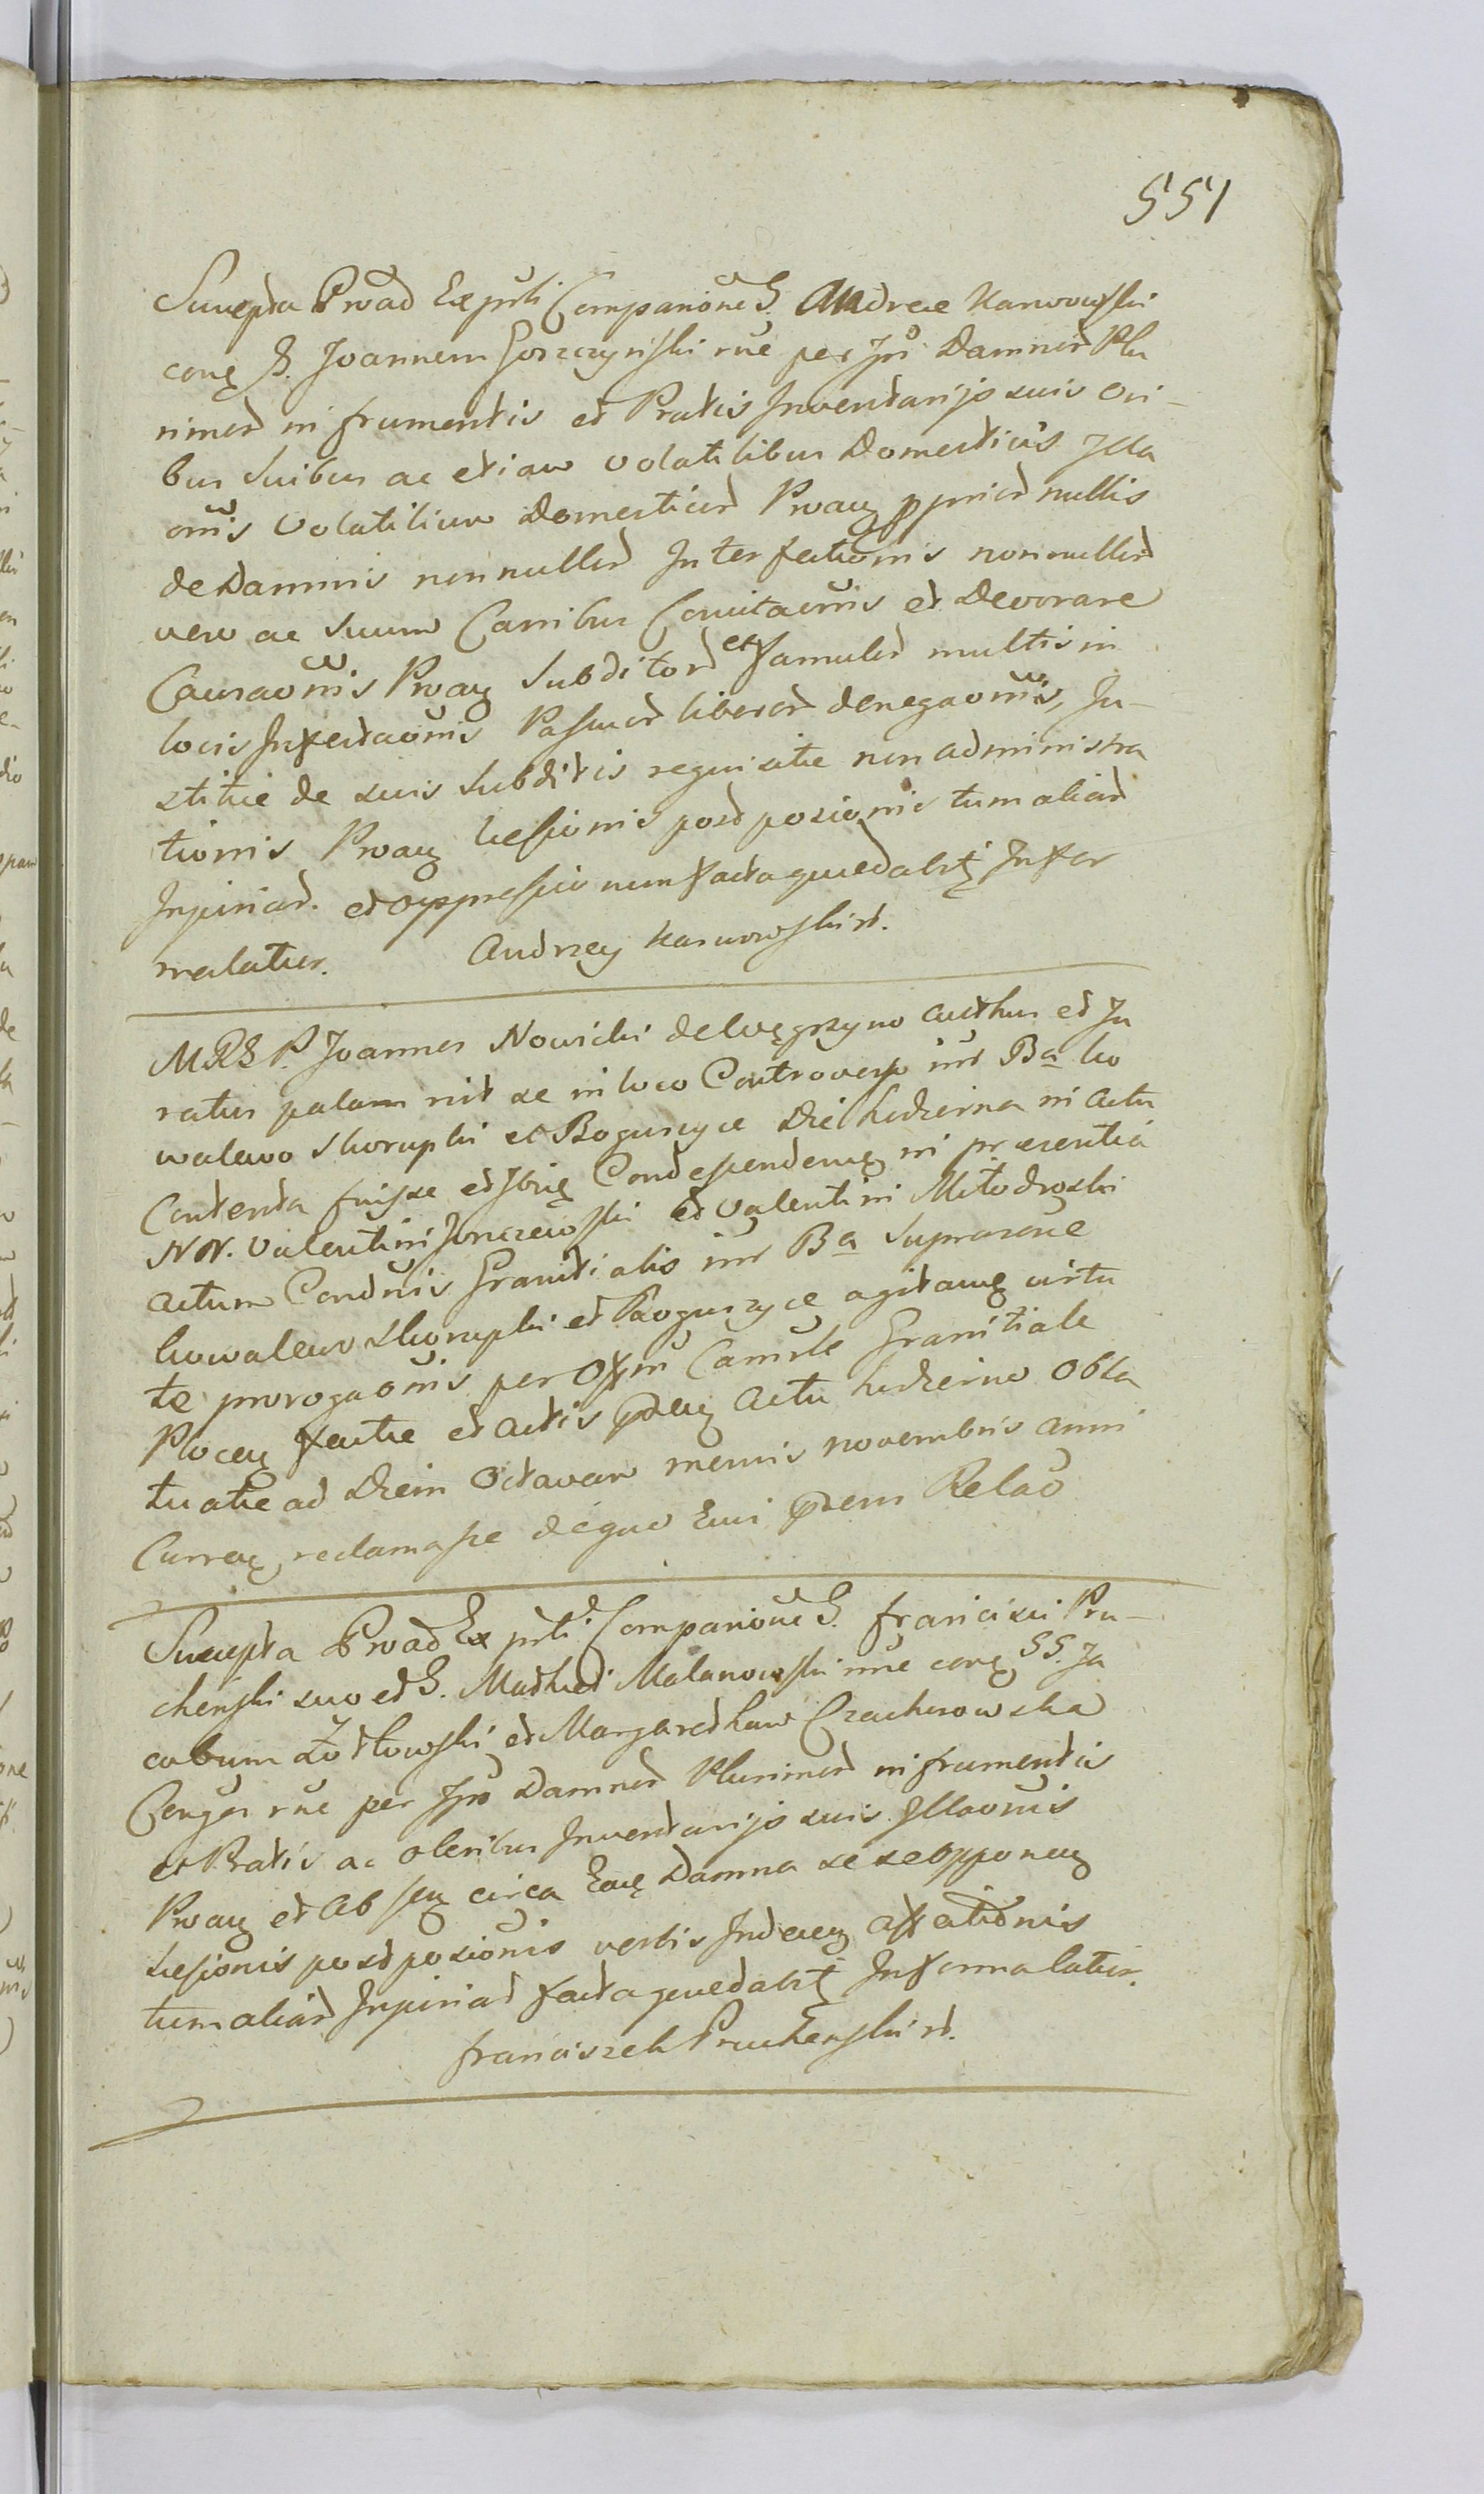 551
Suscepta Prôad Ex prśti Comparitiōne G. Andreæ Karwowski
conę G. Joannem Goszczyński rnē per Ipō Damnord Plu
rimord in frumentis et Pratis Inventarijs suis ovi-
bus suibus ac etiam volatilibus Domesticis Illa
onis Volatilium Domesticord Proaꝫ pprior nullis
de Damnis nonnullord Interfectionis nonnullord
vero ac suum Canibus Concitaōnis et Devorare
Causaōnis Proaꝫ Subditord et famulord multis in
locis Infestaōnis Pascuord liberord denegaōnis, Ju-
stitiæ de suis subditis requisitæ non administra
tionis Proaꝫ læsionis postpositionis tum aliard
Injuriard. et oppressionum facta quædalrꝫ Infor
malatur. Andrzey Karwowski mp.
M R G P. Joannes Nowicki de Węgrzyno Actuus et Ju
ratus palam rit se in loco Controverso int Ba Ko
walewo Skorupki et Boguszyce Die hodierna in Actu
Contenta fuisse et Ibię Condescendenę in præsentia
NN. Valentini Jonczewski et Valentini Młodroski
actum Condnis Granitialis int Ba Suprasōne
Kowalewo Skorupki et Boguszyce agitanę virtu
te prorogaōnis per Offm Camrle Granitiale
Plocenꝫ factæ et actis pdenꝫ Actu hodierno Obla
tuatæ ad Diem Octavam mensis novembris anni
Currenꝫ reclamasse deque Eius pdem Relaō
Suscepta Prôad Ex prśti Comparitiōne G. Francisci Pru-
chenski suo et G. Mathei Malanowski nnē conę GG. Ja
cobum Żołtowski et Margaretham Czachorowska
Conjges rnē per Ipō Damnord Plurimord in frumentis
et Pratis ac oleribus Inventarijs suis Illaōnis
Proaꝫ et Ab seꝫ circa Eaię Damna se se opponenꝫ
læsionis postpositionis verbis Indecenꝫ affectionis
tum aliard Injuriard facta quædalrꝫ Informalatur.
Franciszek Pruchenski mp.